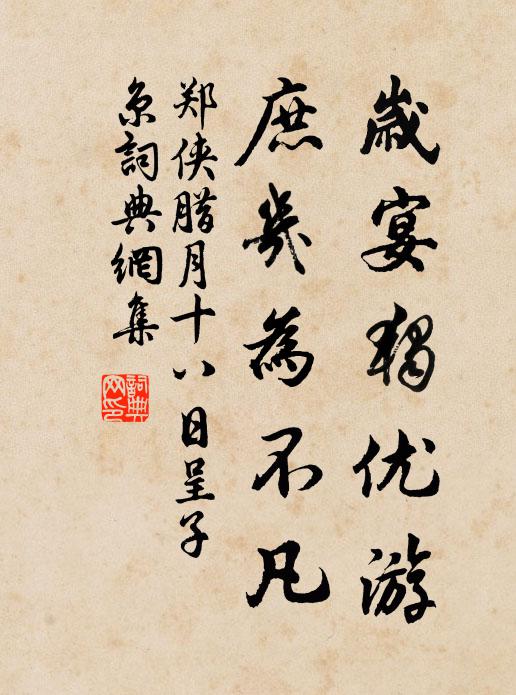 歲宴獨优游
庶幾為不凡
郑侠腊月十八日呈子
京詞典網集
詞典
网印